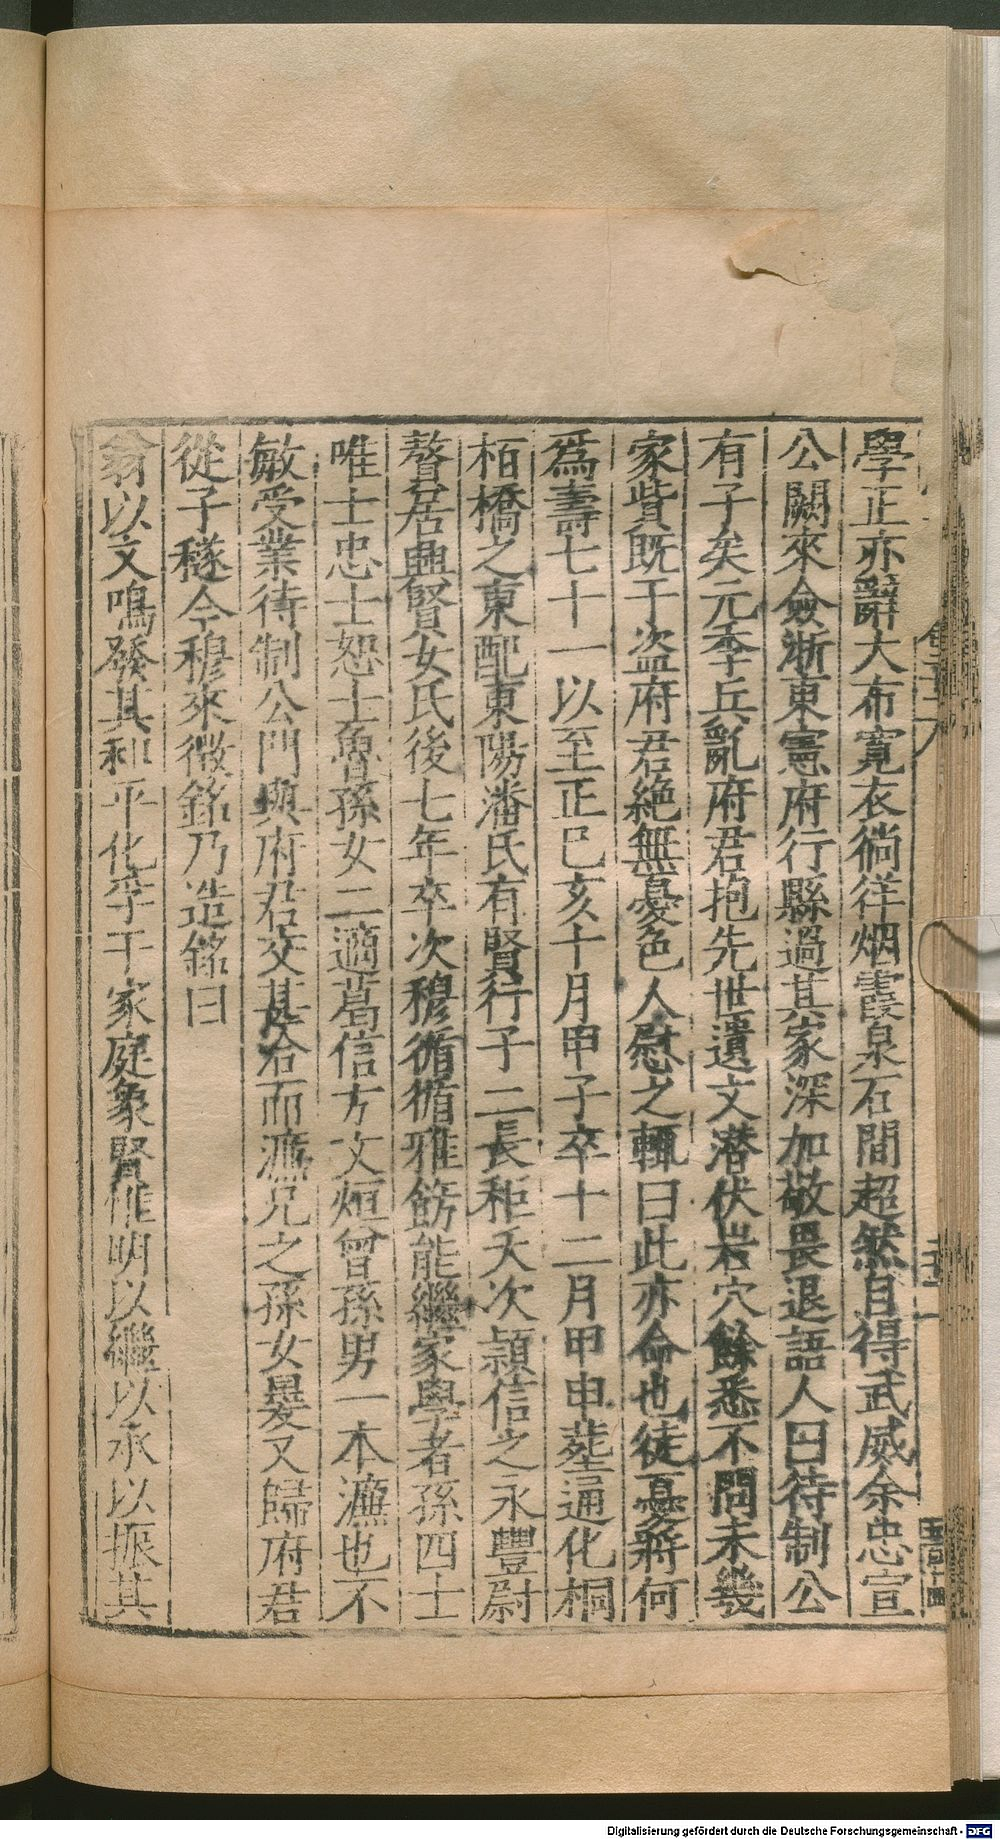 學正亦辭大布寬衣徜徉烟霞泉石間超然自得武威余忠宣
公闕來僉浙東憲府行縣過其家深加敬畏退語人曰待制公
有子矣元季兵亂府君抱先世遺文潜伏岩穴餘悉不問未幾
家貲既于盗府君絶無憂色人慰之輒曰此亦命也徒憂將何
爲壽七十一以至正巳亥十月甲子卒十二月甲申塟通化桐
栢橋之東配東陽潘氏有賢行子二長秬夭次頴信之永豐尉
謷居興賢女氏後七年卒次穆循循雅飭能繼家學者孫四士
唯士忠士恕士魯孫女二適葛信方文烜曾孫男一本濂也不
敏受業待制公門與府君交甚洽而濂兄之孫女㬊又歸府君
從子穟今穆來徵銘乃造銘曰
翁以文鳴發其和平化孚于家庭象賢惟明以繼以承以振其
Digitalisierung gefördert durch die Deutsche Forschungsgemeinschaft - DFG